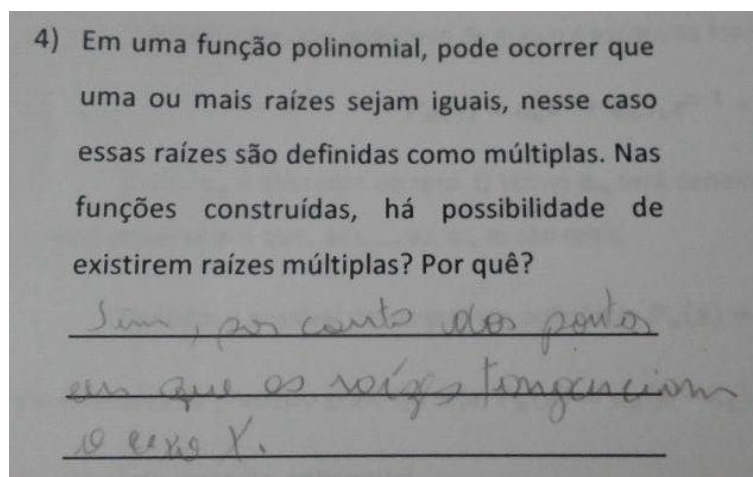 4) Em uma função polinomial, pode ocorrer que
uma ou mais raízes sejam iguais, nesse caso
essas raízes são definidas como múltiplas. Nas
funções construídas, há possibilidade de
existirem raízes múltiplas? Por quê?
Sim, por conta dos pontos
em que as raízes tangenciam
o eixo X.